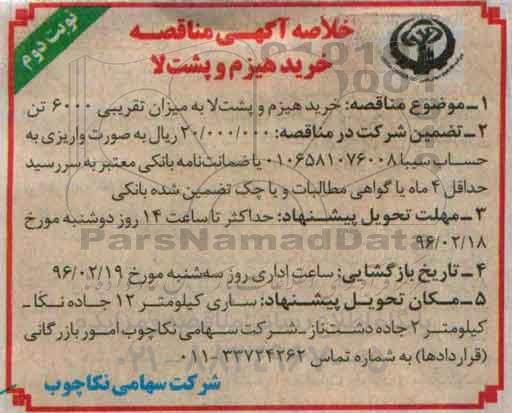 نوبت دوم
خلاصه آگهی مناقصه
خرید هیزم و پشت‌لا
۱ـ موضوع مناقصه: خرید هیزم و پشت‌لا به میزان تقریبی ۶۰۰۰ تن
۲ـ تضمین شرکت در مناقصه: ۲۰/۰۰۰/۰۰۰ ریال به صورت واریزی به
حساب سیبا ۰۱۰۶۵۸۱۰۷۶۰۰۸ یا ضمانت‌نامه بانکی معتبر به سررسید
حداقل ۴ ماه یا گواهی مطالبات و یا چک تضمین شده بانکی
۳ـ مهلت تحویل پیشنهاد: حداکثر تا ساعت ۱۴ روز دوشنبه مورخ
۹۶/۰۲/۱۸
ParsNamadData
۴ـ تاریخ بازگشایی: ساعت اداری روز سه‌شنبه مورخ ۹۶/۰۲/۱۹
۵ـ مکان تحویل پیشنهاد: ساری کیلومتر ۱۲ جاده نکا ـ
کیلومتر ۲ جاده دشت‌ناز ـ شرکت سهامی نکاچوب امور بازرگانی
(قراردادها) به شماره تماس ۳۳۷۲۴۲۶۲-۰۱۱
شرکت سهامی نکاچوب